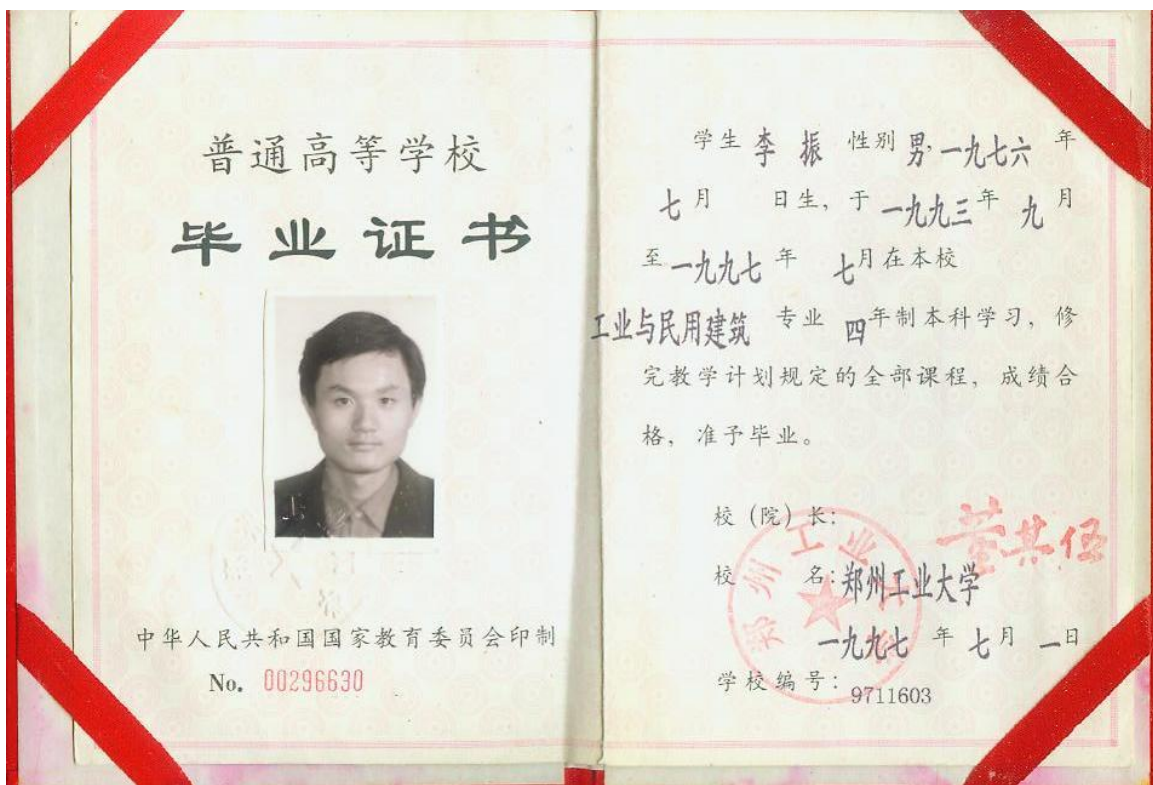 普通高等学校
毕业证书
中华人民共和国国家教育委员会印制
No. 00296630
学生 李 振 性别 男, 一九七六 年
七 月 日生, 于 一九九三 年 九 月
至 一九九七 年 七 月在本校
工业与民用建筑 专业 四 年制本科学习, 修
完教学计划规定的全部课程, 成绩合
格, 准予毕业。
校 (院) 长: 董其伍
校 名: 郑州工业大学
一九九七 年 七 月 一 日
学校编号: 9711603
郑州工业大学